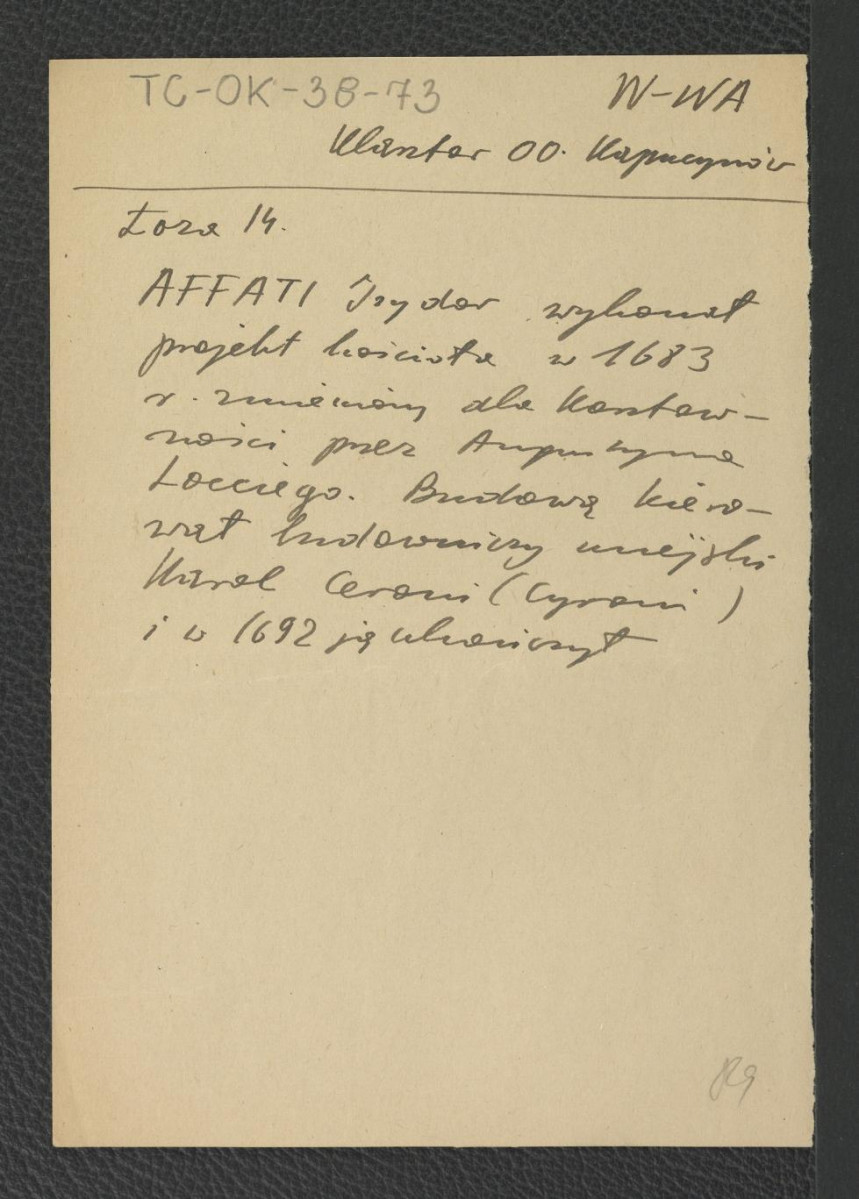 TC-OK-38-73 W-WA
Klasztor OO. Kapucynów
Łoza 14.
AFFATI Izydor wykonał
projekt kościoła w 1683
r. zmieniony dla kosztow-
ności przez Augustyna
Locciego. Budową kiero-
wał budowniczy miejski
Karol Ceroni (Cyroni)
i w 1692 ją ukończył